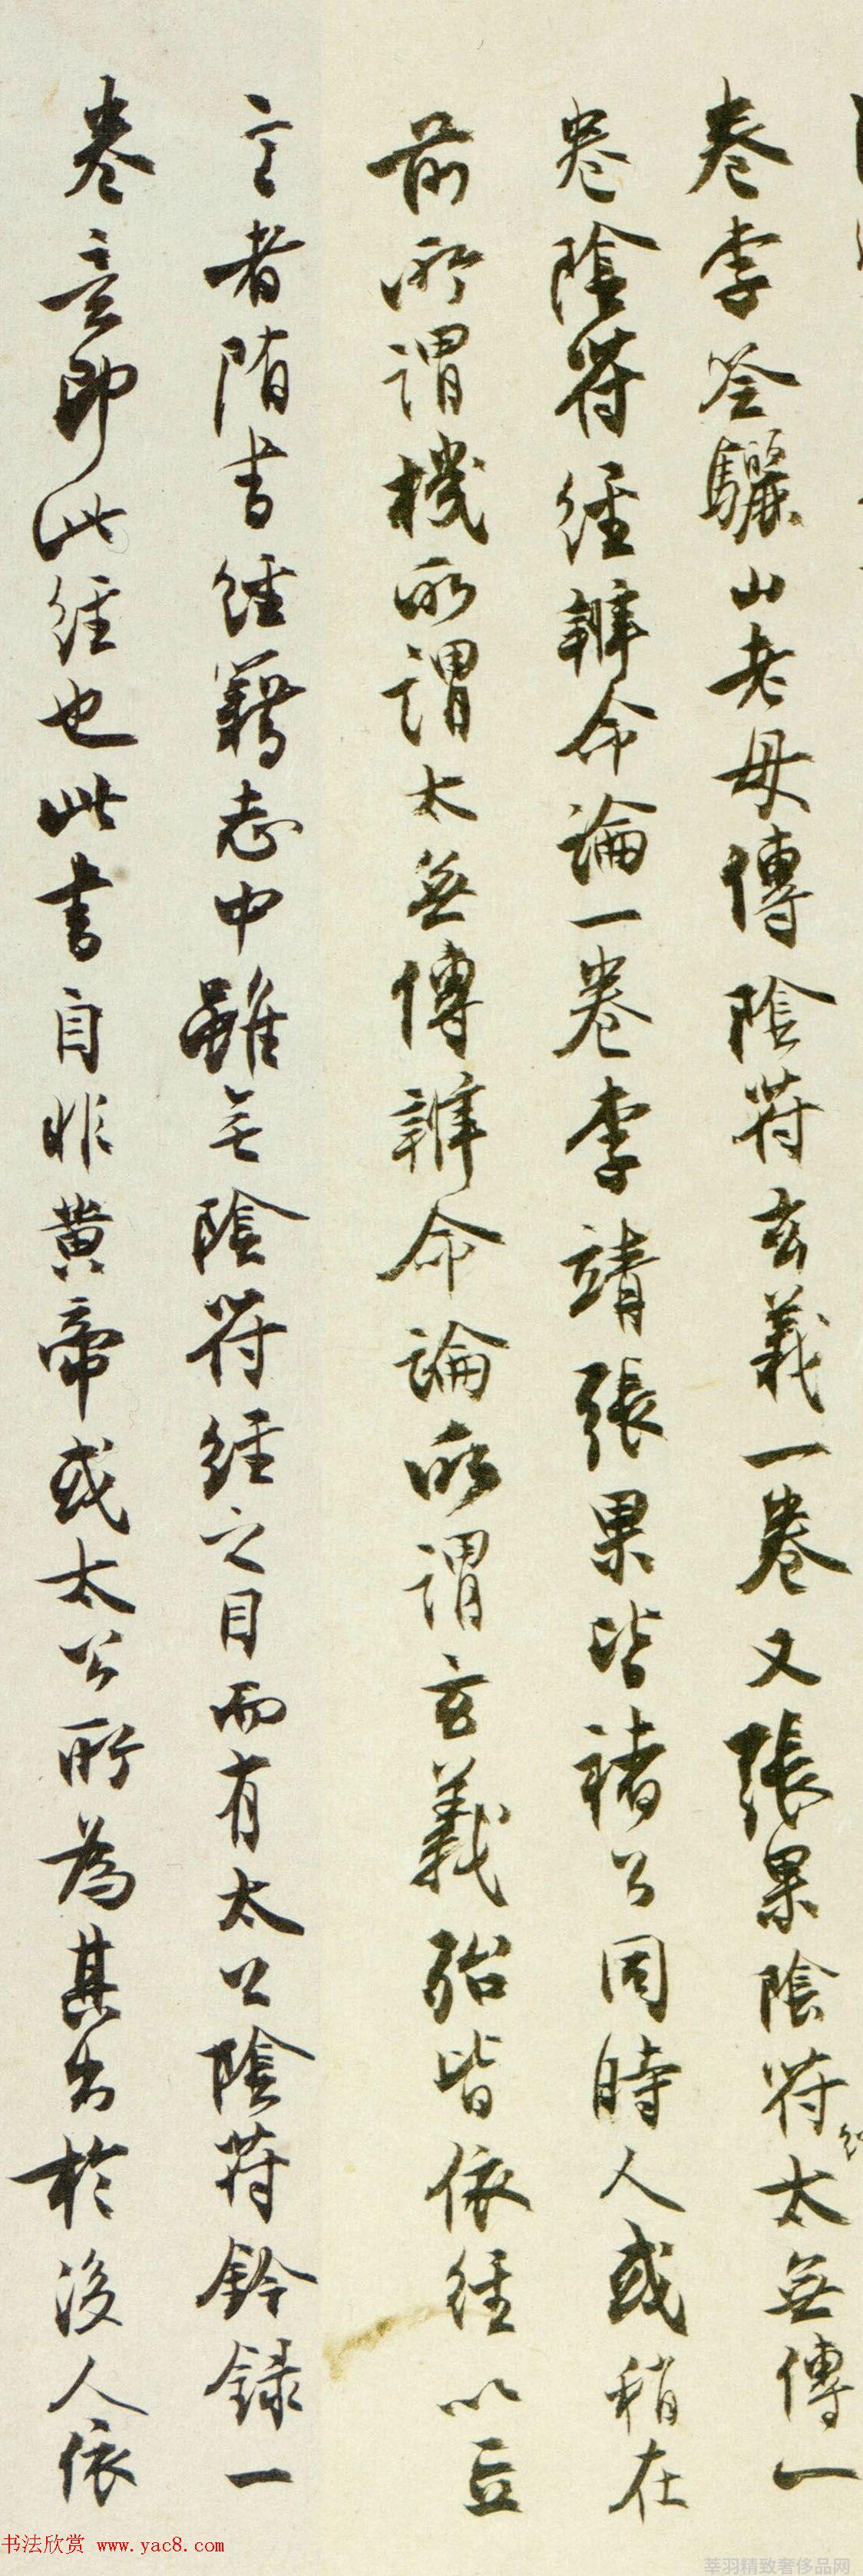 卷李筌驪山老母傳陰符玄義一卷又張果陰符太無傳一
卷陰符經辨命論一卷李靖張果皆褚公同時人或稍在
前所謂機所謂太無傳辨命論所謂玄義殆皆依經以立
言者隋書經籍志中雖无陰符經之目而有太公陰符鈐録一
卷意即此經也此書自非黄帝或太公所為其出於後人依
书法欣赏 www.yac8.com
莘羽精致奢侈品网